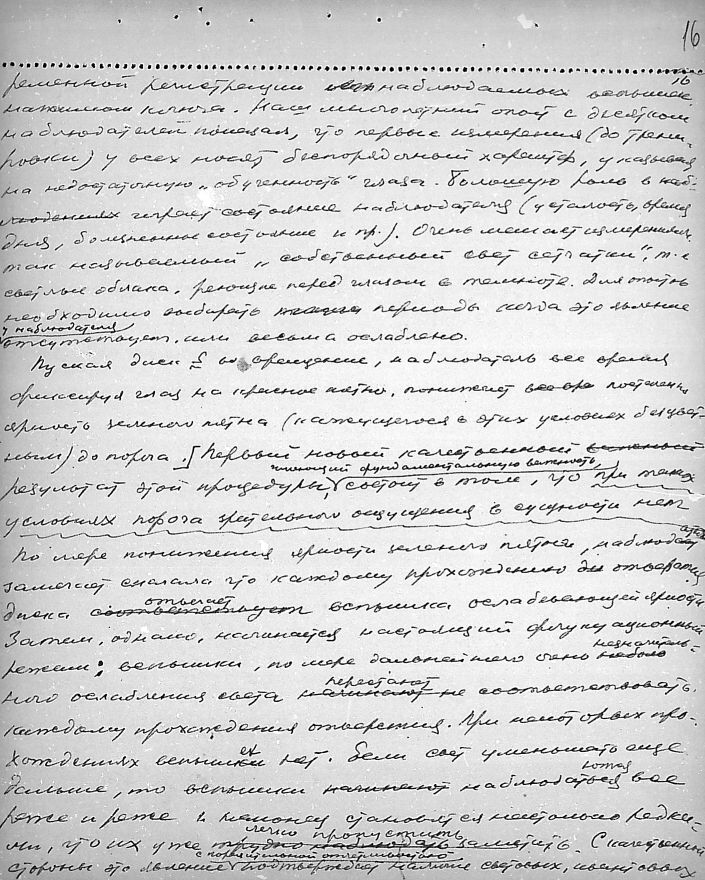 16
16
ременной регистрации наблюдаемых вспышек
нажимом ключа. Наш многолетний опыт с десятком
наблюдателей показал, что первые измерения (до трени-
ровки) у всех носят беспорядочный характер, указывая
на недостаточную „обученность“ глаза. Большую роль в наб-
людениях играет состояние наблюдателя (усталость, время
дня, болезненные состояние и пр.). Очень мешает измерениям
так называемый „собственный свет сетчатки“, т.е
светлые облака, реющие перед глазом в темноте. Для опытов
необходимо выбирать такие периоды когда это явление
у наблюдателя
отсутствует, или весьма ослаблено.
Пуская диск S во вращение, наблюдатель все время
фиксируя глаз на красное пятно, понижает постепенно
яркость зеленого пятна (кажущегося в этих условиях бесцвет-
ным) до порога. [Первый новый качественный
имеющий фундаментальную важность,
результат этой процедуры, состоит в том, что при таких
условиях порога зрительного ощущения в сущности нет
По мере понижения яркости зеленого пятна, наблюдатель
замечает сначала что каждому прохождению отверстия
отвечает
диска соответствует вспышка ослабевающей яркости
Затем, однако, начинается настоящий флуктуационный
незначитель-
режим; вспышки, по мере дальнейшего очень
перестают
ного ослабления света начинают не соответствовать
каждому прохождения отверстия. При некоторых про-
хождениях вспышек нет. Если свет уменьшать еще
дальше, то вспышки начинают наблюдаться все
реже и реже и наконец становятся настолько редки-
легко пропустить
ми, что их уже трудно наблюдать заметить. С качественной
с поразительной отчетливостью
стороны это явление подтверждает наличие световых, квантовых